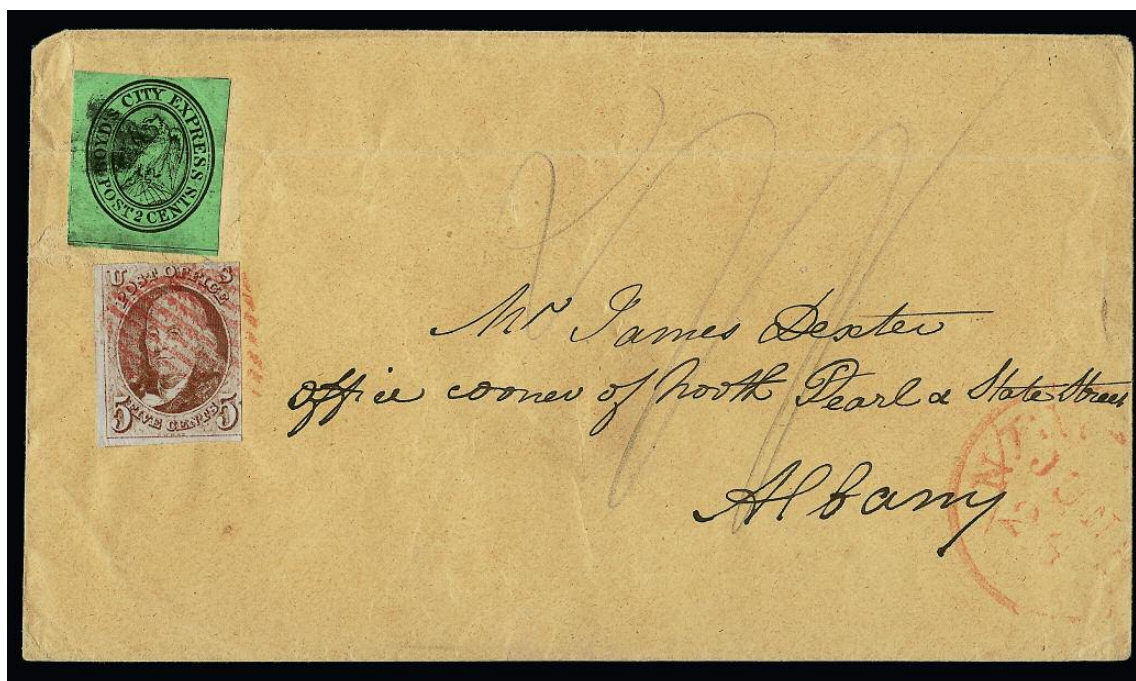 BOYD'S CITY EXPRESS
POST 2 CENTS
U S
POST OFFICE
FIVE CENTS
5 5
Mr James Dexter
office corner of North Pearl & State Street
Albany